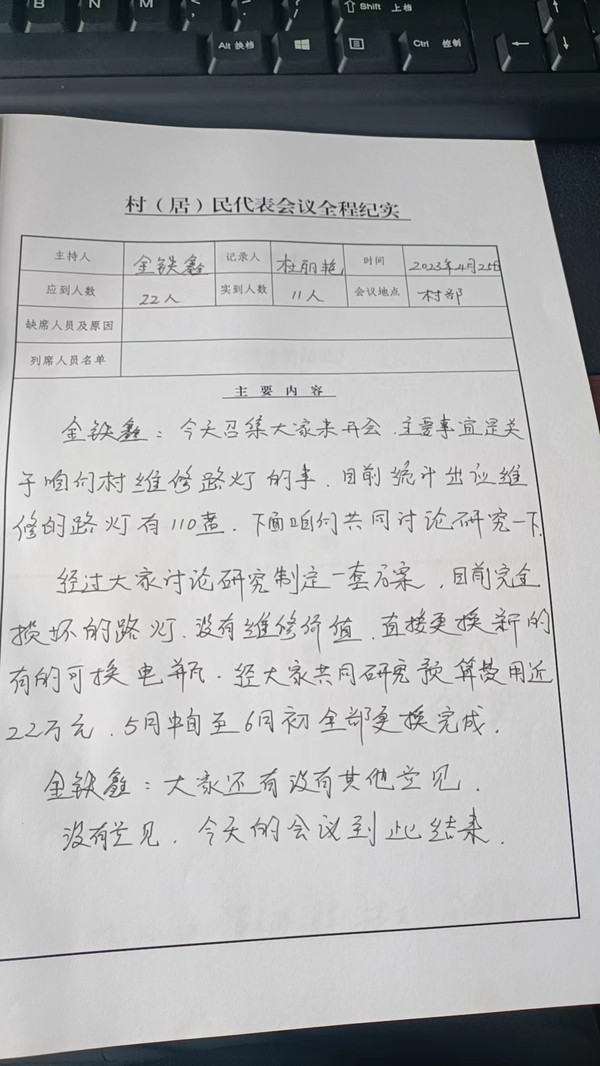 B N M < > ? Shift 上档
Alt 换档 Ctrl 控制
村（居）民代表会议全程纪实
主持人 金铁鑫 记录人 杜丽艳 时间 2023年4月25日
应到人数 22人 实到人数 11人 会议地点 村部
缺席人员及原因
列席人员名单
主要内容
金铁鑫：今天召集大家来开会.主要事宜是关
于咱们村维修路灯的事.目前统计出议维
修的路灯有110盏.下面咱们共同讨论研究一下.
经过大家讨论研究制定一套方案，目前完全
损坏的路灯.没有维修价值.直接更换新的
有的可换电瓶.经大家共同研究预算费用近
22万元.5月中旬至6月初全部更换完成.
金铁鑫：大家还有没有其他意见.
没有意见.今天的会议到此结束.